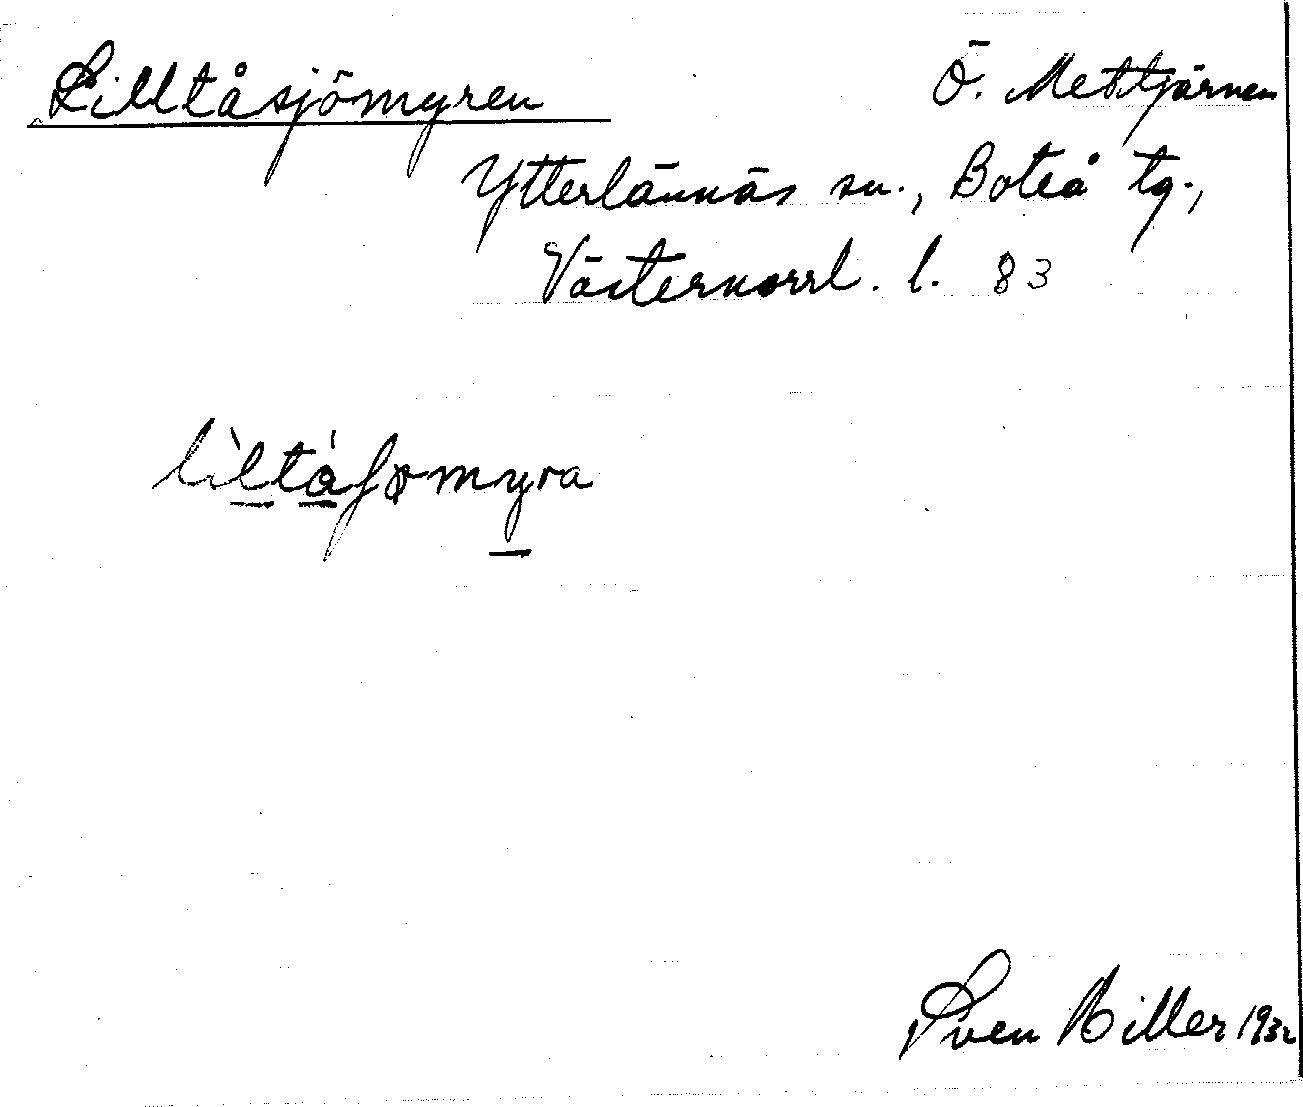 Lilltåsjömyren
Ö. Mettjärnen
Ytterlännäs sn., Boteå tg.,
Västernorrl. l. 83
lìltáʃømyra
Sven Hiller 1932